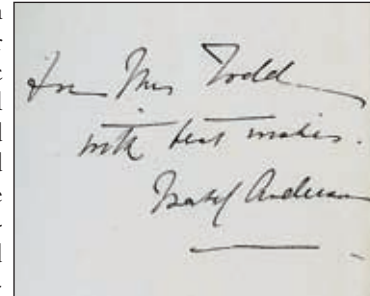 For Mrs Todd
with best wishes.
Isabel Anderson